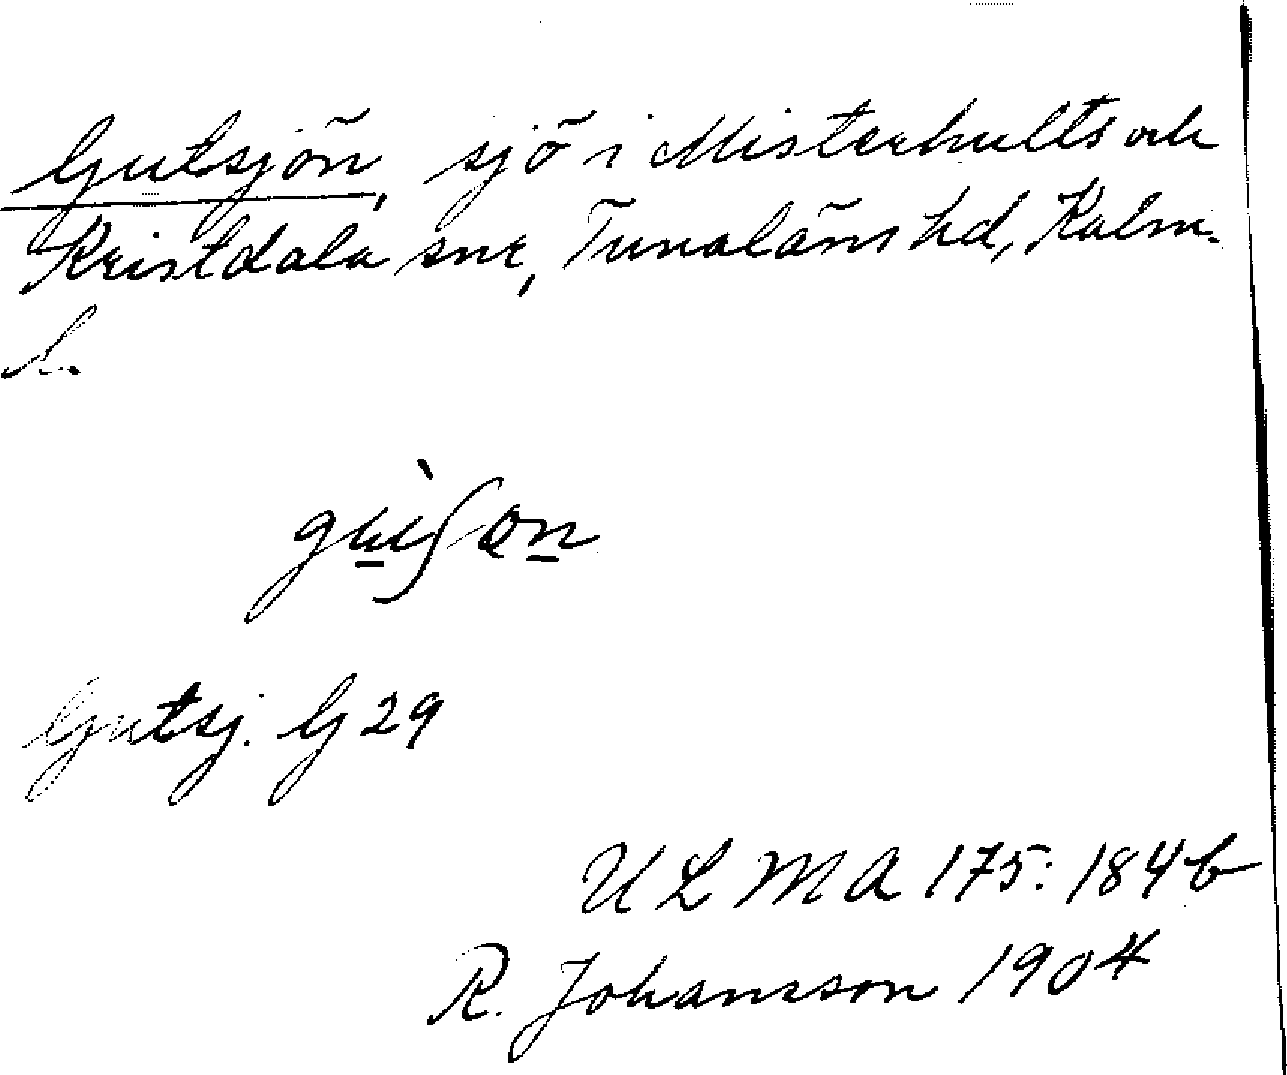 Gutsjön, sjö i Misterhults och
Kristdala snr, Tunaläns hd, Kalm.
l.
Gutsj. G 29
U L M A 175: 184 b
R. Johansson 1904